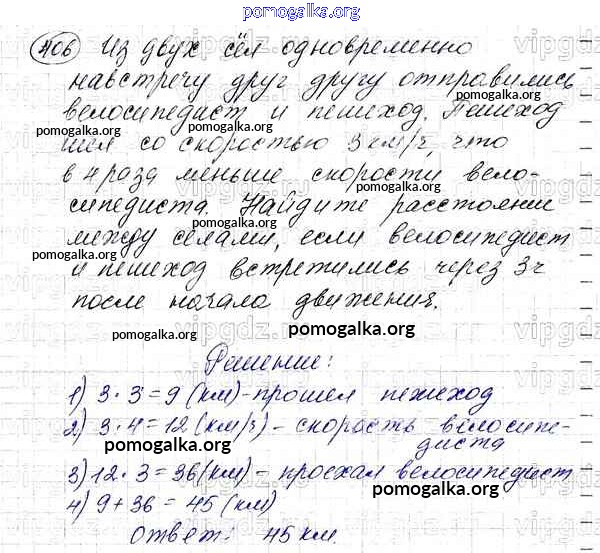 pomogalka.org
406 Из двух сёл одновременно
навстречу друг другу отправились
велосипедист и пешеход. Пешеход
pomogalka.org pomogalka.org
шел со скоростью 3 км/ч, что
в 4 раза меньше скорости вело-
pomogalka.org pomogalka.org
сипедиста. Найдите расстояние
pomogalka.org
между сёлами, если велосипедист
pomogalka.org
и пешеход встретились через 3ч
после начала движения.
pomogalka.org pomogalka.org
Решение:
1) 3 · 3 = 9 (км) - прошел пешеход
2) 3 · 4 = 12 (км/ч) - скорость велосипе-
диста
pomogalka.org
3) 12 · 3 = 36 (км) - проехал велосипедист
pomogalka.org
4) 9 + 36 = 45 (км)
Ответ: 45 км.